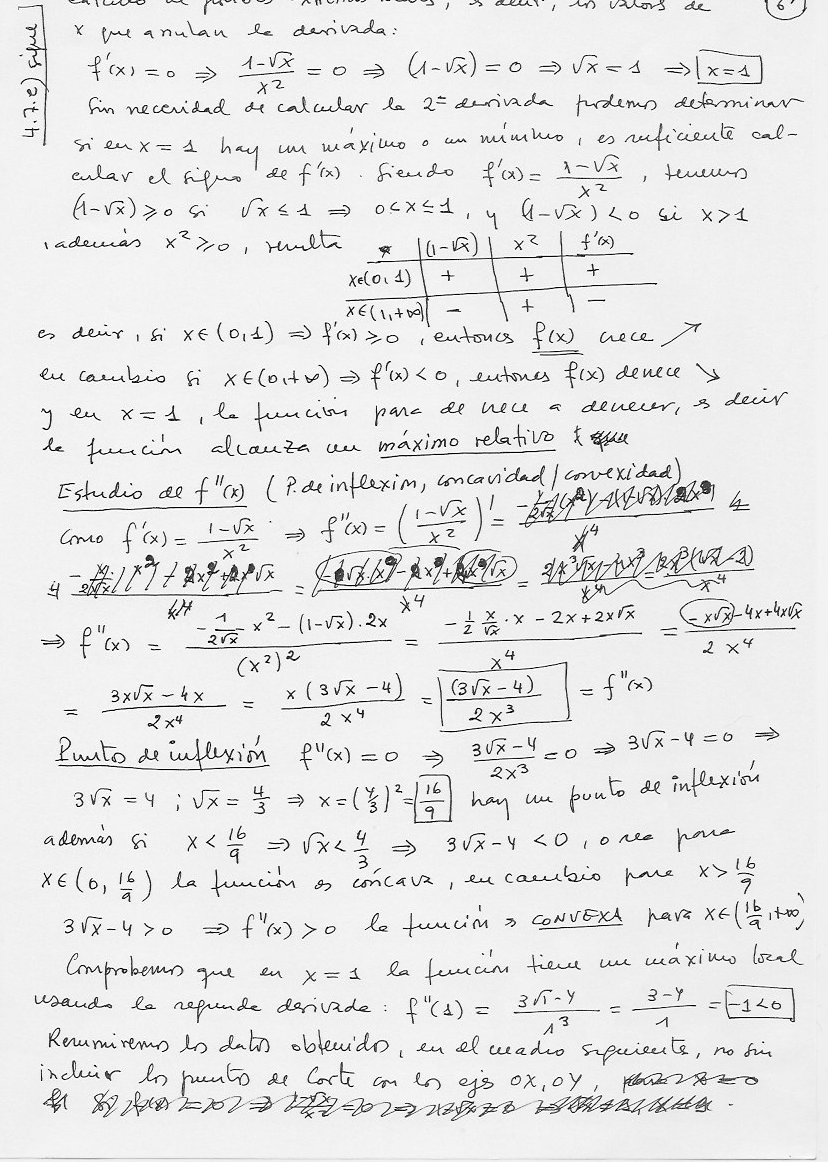 4.7.e) sigue
6
cálculo de puntos extremos, es decir, los valores de
x que anulan la derivada:
f'(x) = 0 ⇒ (1-√x)/x² = 0 ⇒ (1-√x) = 0 ⇒ √x = 1 ⇒ x=1
Sin necesidad de calcular la 2ª derivada podemos determinar
si en x = 1 hay un máximo o un mínimo, es suficiente cal-
cular el signo de f'(x). Siendo f'(x) = (1-√x)/x², tenemos
(1-√x) ≥ 0 si √x ≤ 1 ⇒ 0<x≤1, y (1-√x) < 0 si x>1
, además x² ≥ 0, resulta
x | (1-√x) | x² | f'(x)
x∈(0,1) | + | + | +
x∈(1,+∞) | - | + | -
es decir, si x∈(0,1) ⇒ f'(x) ≥ 0, entonces f(x) crece ↗
en cambio si x∈(0,+∞) ⇒ f'(x) < 0, entonces f(x) decrece ↘
y en x = 1, la función pasa de crece a decrecer, es decir
la función alcanza un máximo relativo
Estudio de f''(x) (P. de inflexión, concavidad/convexidad)
Como f'(x) = (1-√x)/x² ⇒ f''(x) = ((1-√x)/x²)' =
⇒ f''(x) = (-1/(2√x) x² - (1-√x)·2x)/(x²)² = (-1/2 x/√x · x - 2x + 2x√x)/x⁴ = (-x√x - 4x + 4x√x)/2x⁴
= (3x√x - 4x)/2x⁴ = x(3√x - 4)/2x⁴ = (3√x - 4)/2x³ = f''(x)
Puntos de inflexión f''(x) = 0 ⇒ (3√x - 4)/2x³ = 0 ⇒ 3√x - 4 = 0 ⇒
3√x = 4 ; √x = 4/3 ⇒ x = (4/3)² = 16/9 hay un punto de inflexión
además si x < 16/9 ⇒ √x < 4/3 ⇒ 3√x - 4 < 0, o sea para
x∈(0, 16/9) la función es cóncava, en cambio para x > 16/9
3√x - 4 > 0 ⇒ f''(x) > 0 la función es CONVEXA para x∈(16/9, +∞)
Comprobemos que en x = 1 la función tiene un máximo local
usando la segunda derivada: f''(1) = (3√1 - 4)/1³ = (3-4)/1 = -1<0
Resumiremos los datos obtenidos, en el cuadro siguiente, no sin
incluir los puntos de Corte con los ejes OX, OY,